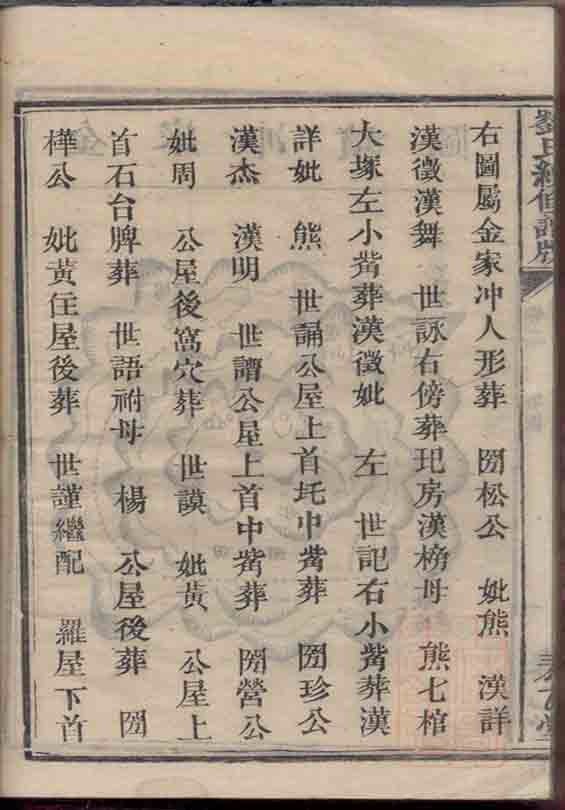 右圖屬金家冲人形葬 圀松公 妣熊 漢詳
漢徵漢舞 世詠右傍葬玘房漢榜母 熊七棺
大塚左小觜葬漢徵妣 左 世記右小觜葬漢
詳妣 熊 世誦公屋上首圫中觜葬 圀珍公
漢杰 漢明 世譜公屋上首中觜葬 圀營公
妣周 公屋後窩穴葬 世謨 妣黄 公屋上
首石台脾葬 世語祔母 楊 公屋後葬 圀
樺公 妣黃住屋後葬 世謹繼配 羅屋下首